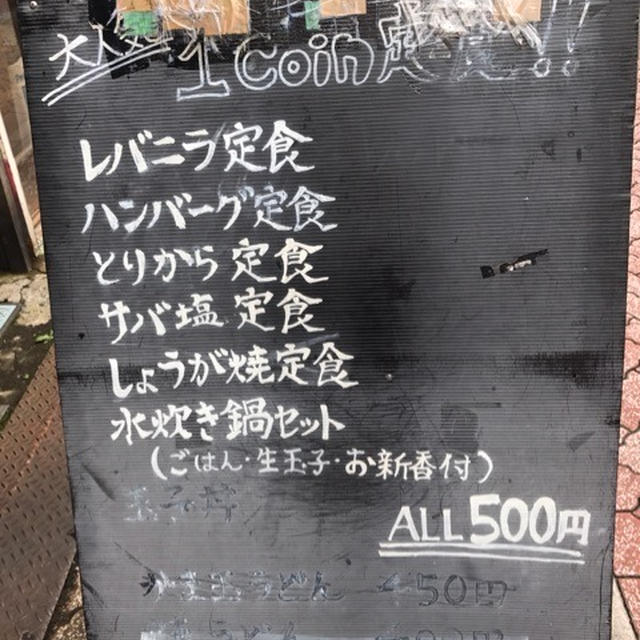 1 Coin 定食!!
レバニラ定食
ハンバーグ定食
とりから定食
サバ塩定食
しょうが焼定食
水炊き鍋セット
(ごはん・生玉子・お新香付)
玉子丼
ALL500円
かま玉うどん 450円
うどん